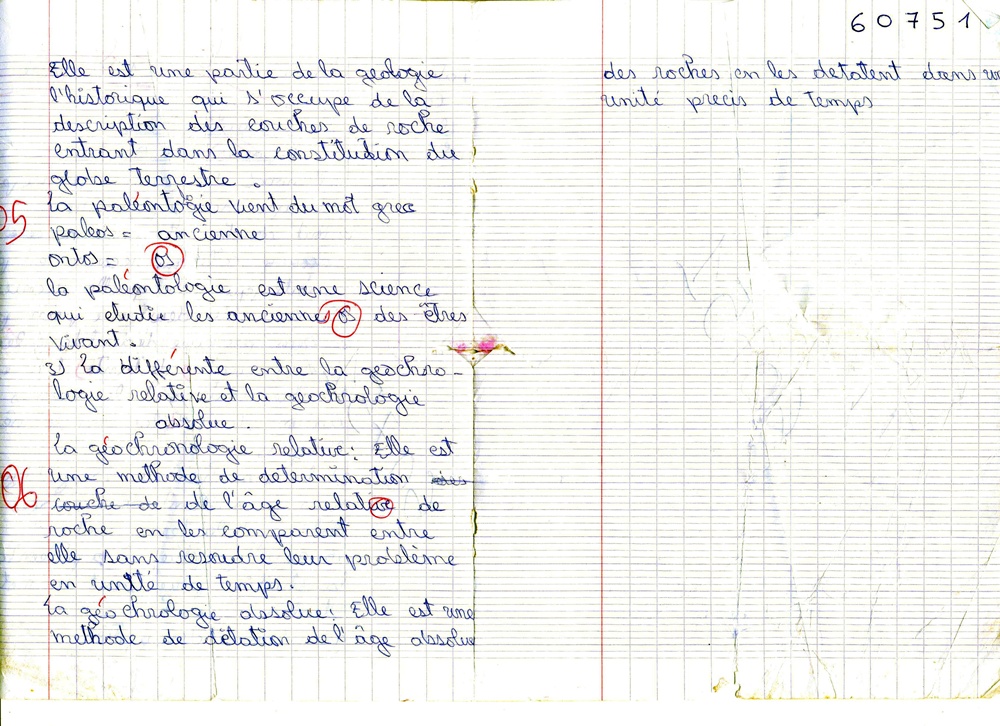 60751
Elle est une partie de la geologie
l'historique qui s'occupe de la
description des couches de roche
entrant dans la constitution du
globe terrestre.
la paléontogie vient du mot grec
05
paleos = ancienne
ontos = os
la paléontologie est une science
qui etudie les anciennes os des êtres
vivant.
3) la différente entre la geochro-
logie relative et la geochrologie
absolue.
la géochronologie relative: Elle est
une methode de determination des
06
couche de de l'âge relative de
roche en les comparent entre
elle sans resoudre leur problème
en unité de temps.
la géochrologie absolue: Elle est une
methode de détation de l'âge absolue
des roches en les detatent dans un
unité precis de temps